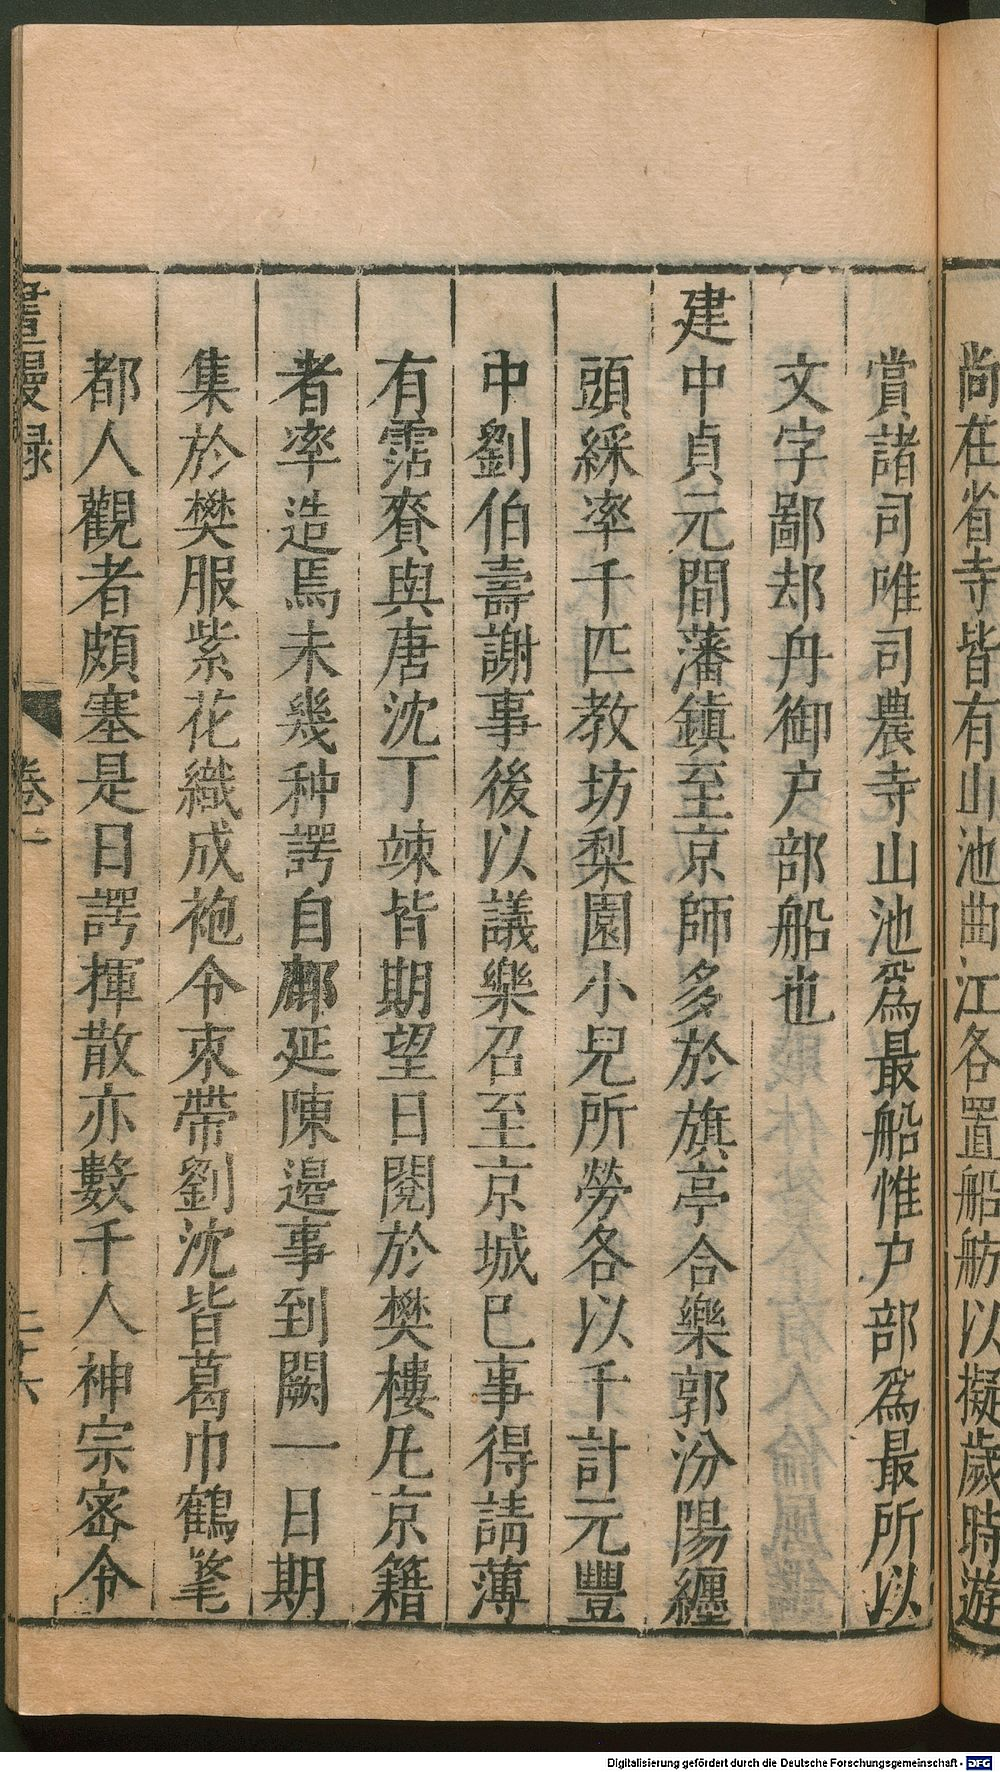 尚在省寺皆有山池曲江各置船舫以擬歲時遊
賞諸司唯司農寺山池爲最船惟户部爲最所以
文字鄙却丹御户部船也
建中貞元間藩鎮至京師多於旗亭合樂郭汾陽纒
頭綵率千匹教坊梨園小兒所勞各以千計元豐
中劉伯壽謝事後以議樂召至京城巳事得請薄
有霑賚與唐沈丁竦皆期望日閱於樊樓凡京籍
者率造焉未幾种諤自鄜延陳邉事到闕一日期
集於樊服紫花織成袍令朿帶劉沈皆葛巾鶴氅
都人觀者頗塞是日諤揮散亦數千人神宗密令
畫墁録
卷一
二十六
Digitalisierung gefördert durch die Deutsche Forschungsgemeinschaft - DFG